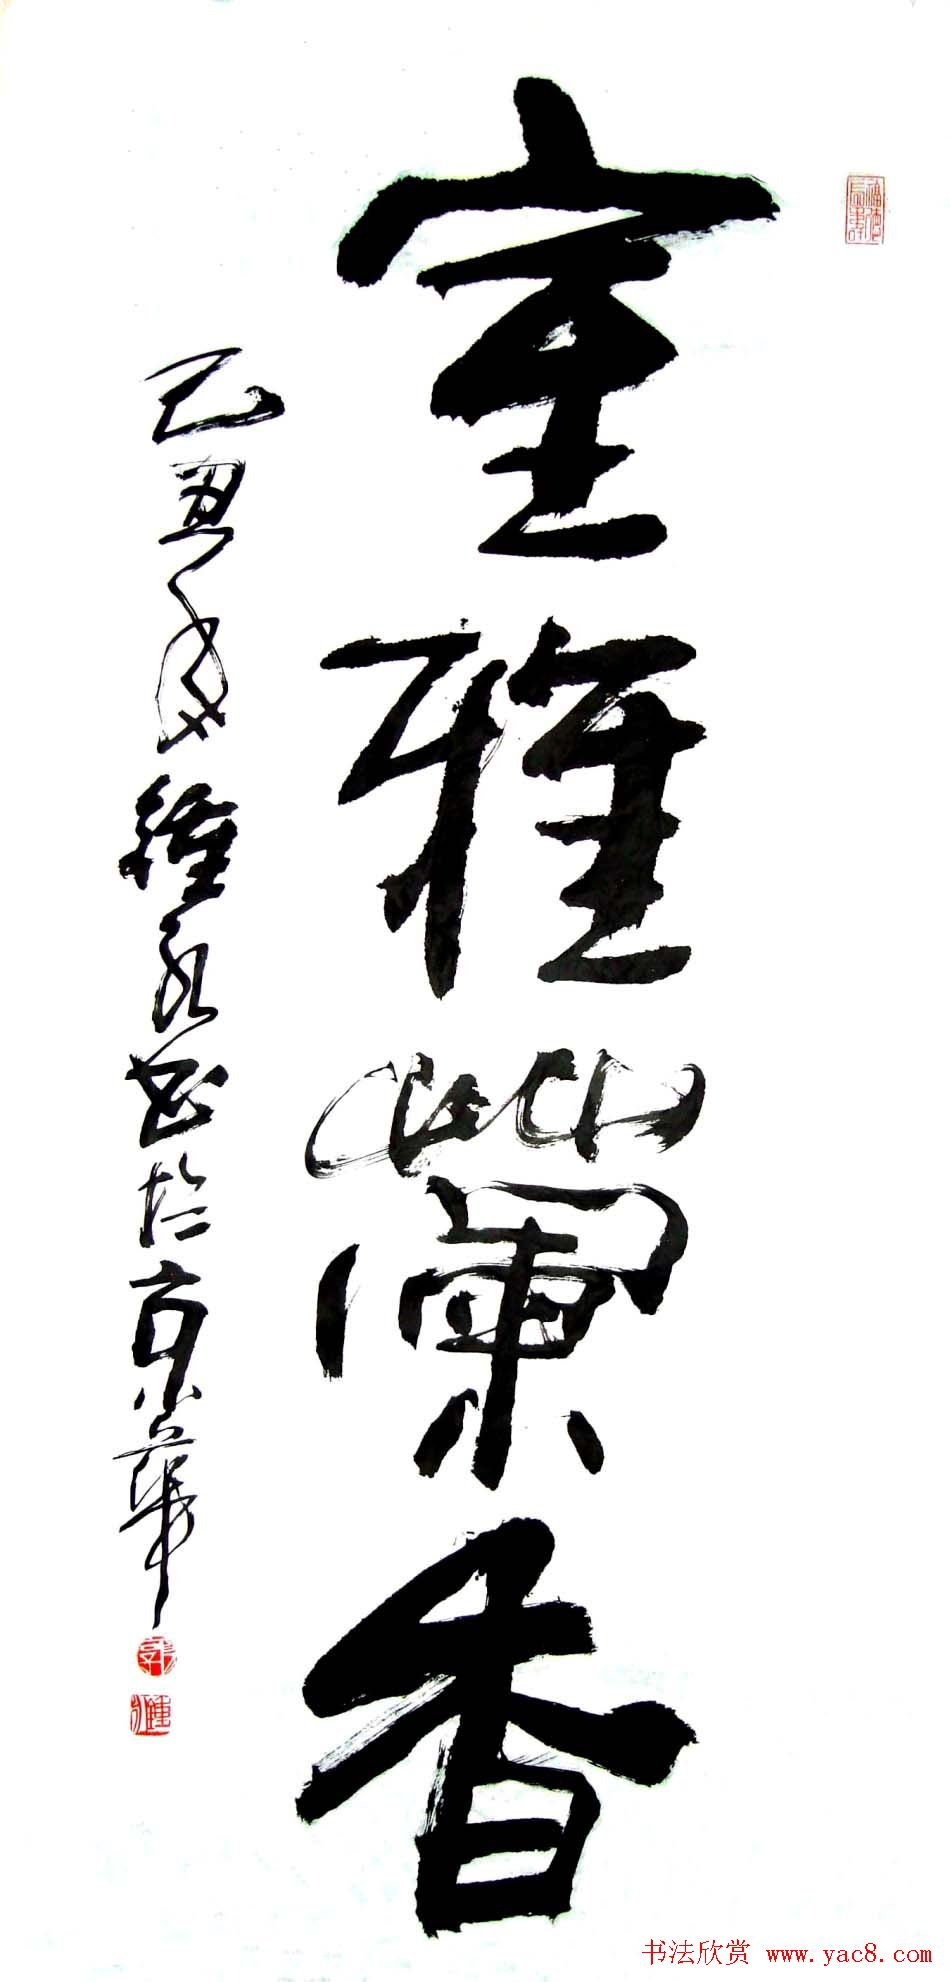 室雅蘭香
己丑年鍾永書於京華
书法欣赏 www.yac8.com